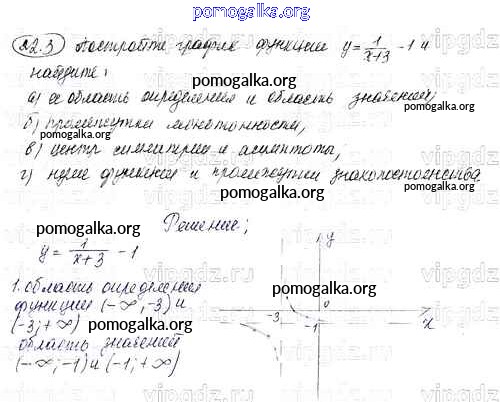 pomogalka.org
22.3 Постройте график функции y = 1/(x+3) - 1 и
найдите:
а) область определения и область значений;
pomogalka.org
б) промежутки монотонности,
pomogalka.org
в) центр симметрии и асимптоты,
pomogalka.org
г) нули функции и промежутки знакопостоянства.
pomogalka.org
Решение:
y = 1/(x+3) - 1
pomogalka.org
y
1. область определения
функции (-∞; -3) и
(-3; +∞)
pomogalka.org
-3
0
-1
x
pomogalka.org
область значений
(-∞; -1) и (-1; +∞)
pomogalka.org
vipgdz.ru